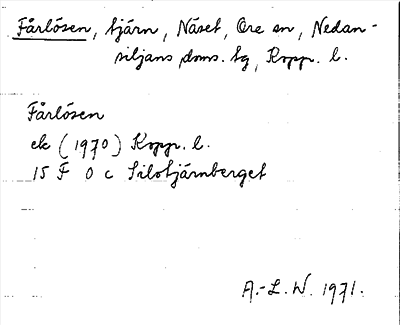 Fårlösen, tjärn, Näset, Ore sn, Nedan-
siljans doms. tg, Kopp. l.
Fårlösen
ek (1970) Kopp. l.
15 F 0 c Silotjärnberget
A.-L. W. 1971.